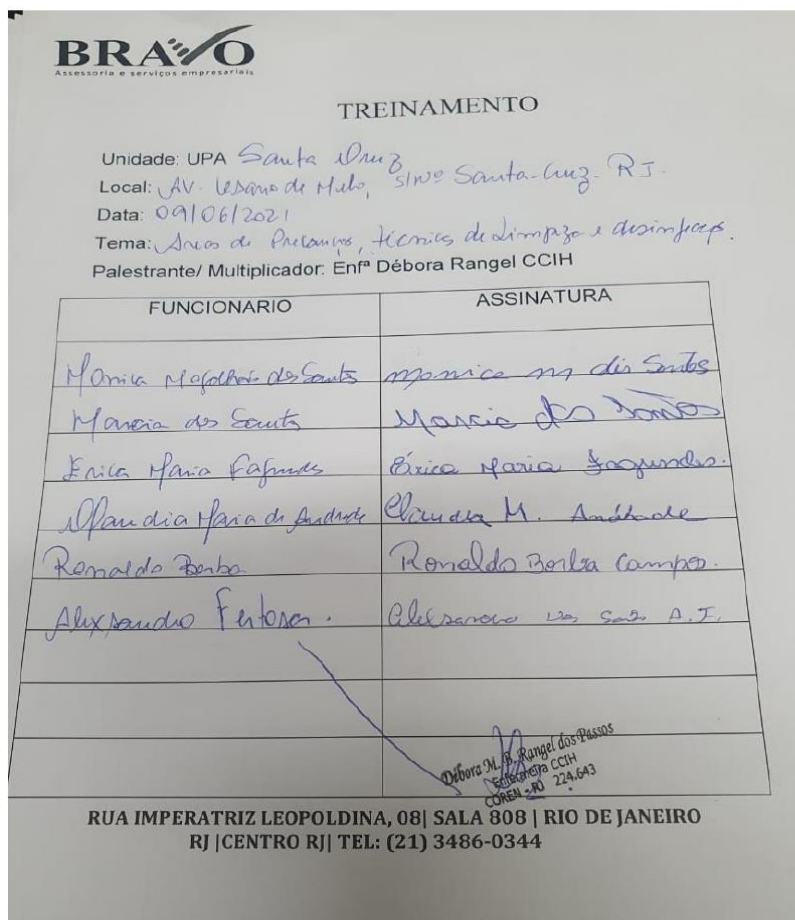 BRAVO
Assessoria e serviços empresariais
TREINAMENTO
Unidade: UPA Santa Cruz
Local: AV. Cesário de Melo, S/Nº Santa-Cruz - RJ.
Data: 09/06/2021
Tema: de Precauções, técnicas de Limpeza e desinfecção.
Palestrante/ Multiplicador: Enfª Débora Rangel CCIH
FUNCIONARIO ASSINATURA
Monica Magalhães dos Santos monica m dos Santos
Marcia dos Santos Marcia dos Santos
Erica Maria Fagundes Érica Maria Fagundes.
Claudia Maria de Andrade Claudia M. Andrade
Ronaldo Borba Ronaldo Borba Campos.
Alexsandro dos
Débora M. B. Rangel dos Passos
Enfermeira CCIH
COREN - RJ 224.643
RUA IMPERATRIZ LEOPOLDINA, 08| SALA 808 | RIO DE JANEIRO
RJ |CENTRO RJ| TEL: (21) 3486-0344